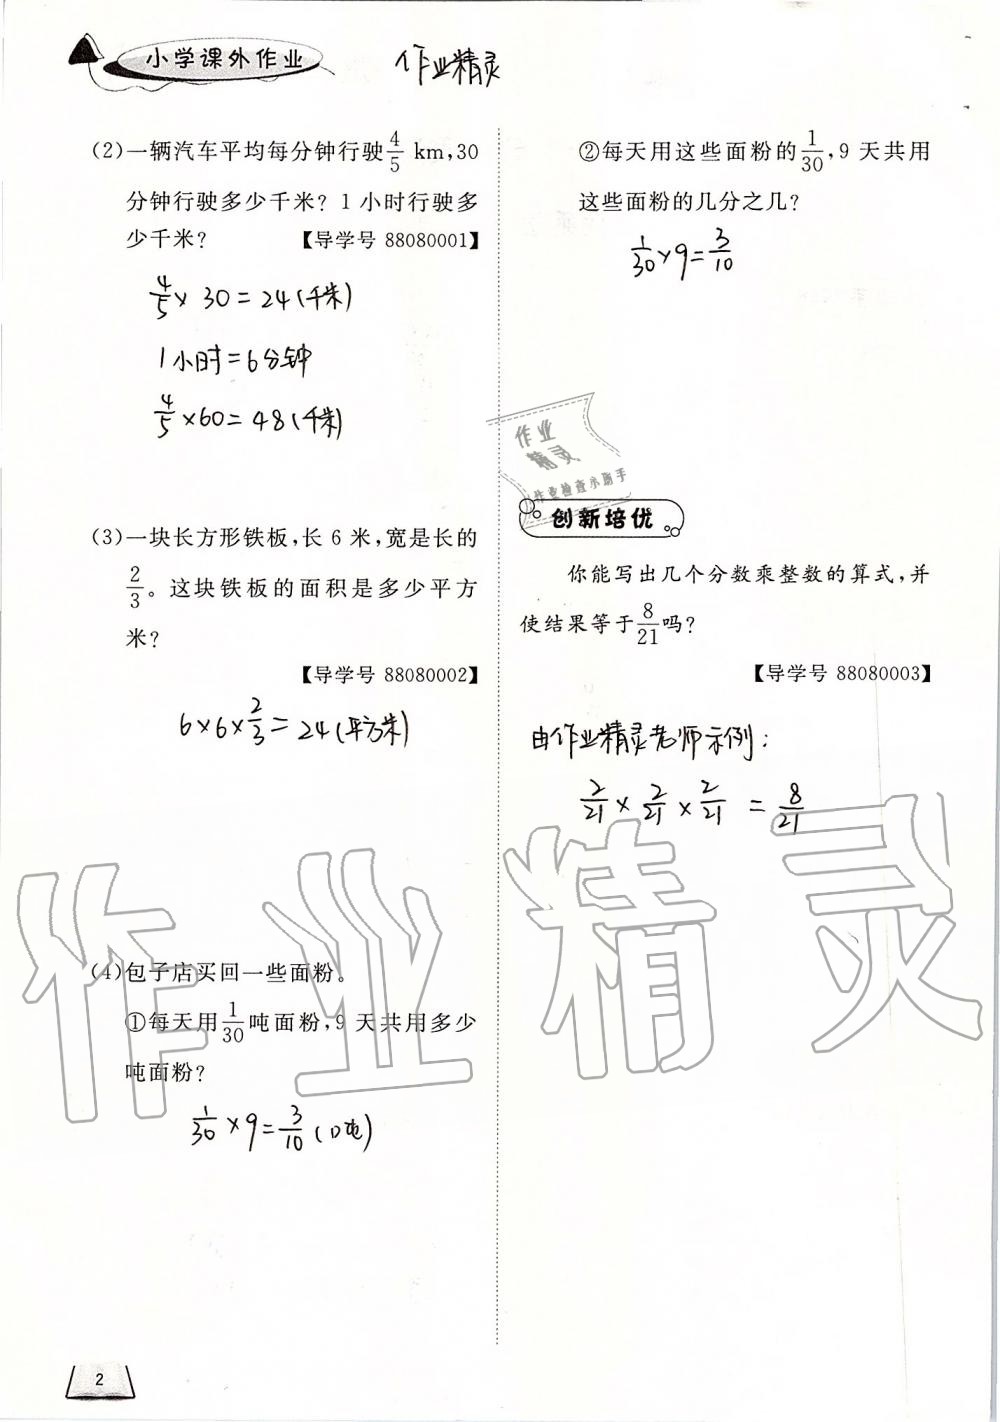 小学课外作业
作业精灵
(2)一辆汽车平均每分钟行驶4/5 km,30
分钟行驶多少千米？1小时行驶多
少千米？ 【导学号 88080001】
4/5 × 30 = 24(千米)
1小时=6分钟
4/5 ×60 = 48(千米)
(3)一块长方形铁板,长 6 米,宽是长的
2/3。这块铁板的面积是多少平方
米？
【导学号 88080002】
6×6×2/3 = 24(平方米)
(4)包子店买回一些面粉。
①每天用1/30吨面粉,9 天共用多少
吨面粉？
1/30 × 9 = 3/10 (吨)
2
②每天用这些面粉的1/30,9 天共用
这些面粉的几分之几？
1/30 × 9 = 3/10
作业
精灵
作业检查小助手
创新培优
你能写出几个分数乘整数的算式,并
使结果等于8/21吗？
【导学号 88080003】
由作业精灵老师示例：
2/21 × 2/21 × 2/21 = 8/21
作业精灵